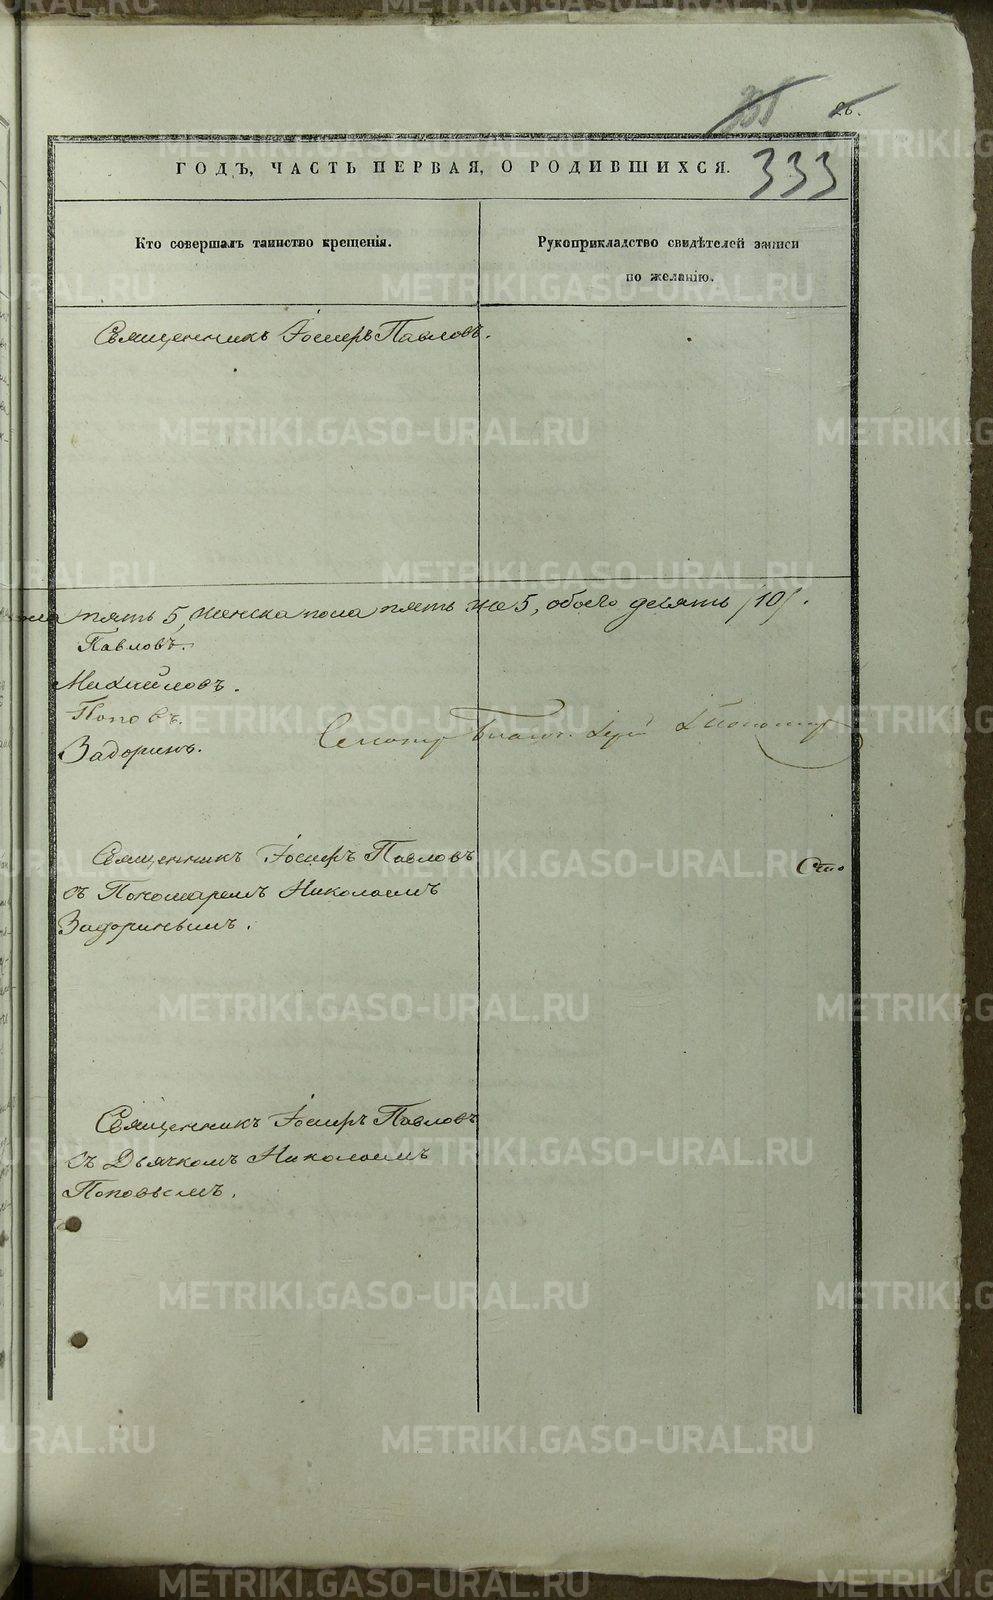 26.
333
ГОДЪ, ЧАСТЬ ПЕРВАЯ, О РОДИВШИХСЯ.
Кто совершалъ таинство крещенія.
Рукоприкладство свидѣтелей записи
по желанію.
Священникъ Іосифъ Павловъ.
пять 5, женска пола пять же 5, обоего десять /10/.
Павловъ.
Михайловъ.
Поповъ.
Задоринъ.
Священникъ Іосифъ Павловъ
съ Пономаремъ Николаемъ
Задоринымъ.
Священникъ Іосифъ Павловъ
съ Дьячкомъ Николаемъ
Поповымъ.
METRIKI.GASO-URAL.RU